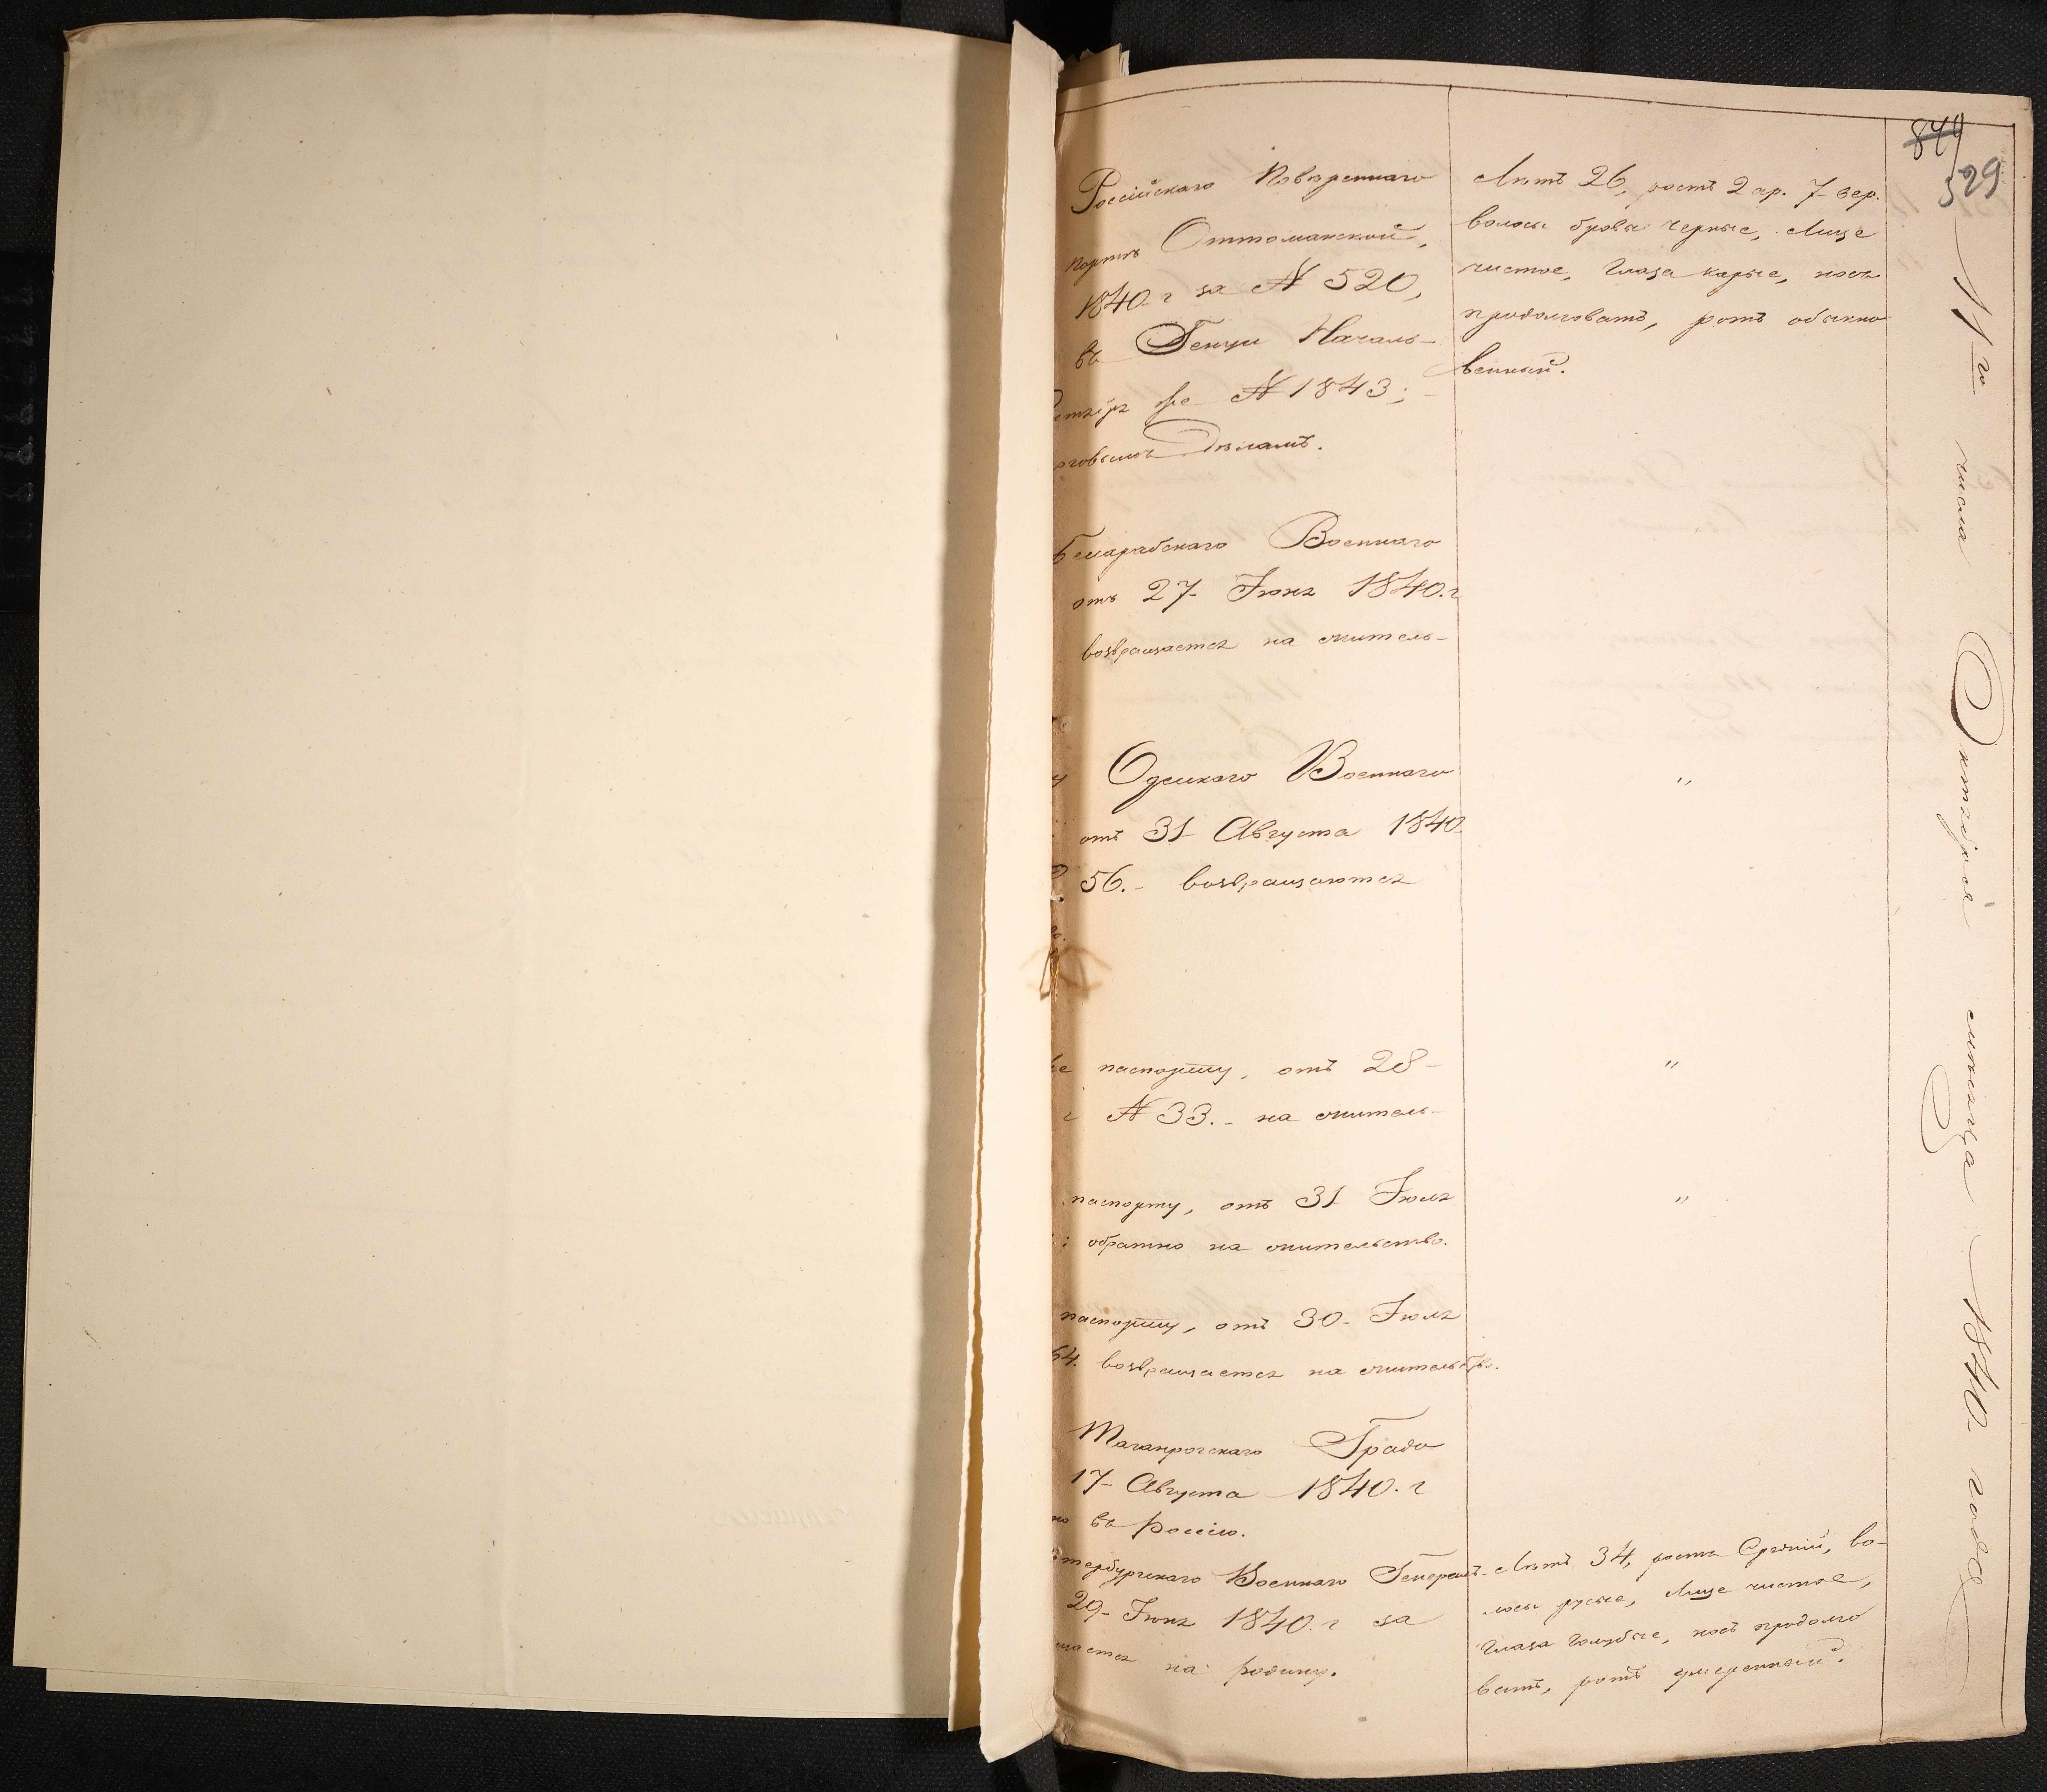 844
529
Россійскаго Повѣреннаго
Портѣ Оттоманской,
1840. г за № 520,
въ Генуи Началь-
№ 1843;
Дѣламъ.
Лѣтъ 26, ростъ 2 ар. 7 вер.
волосы бровы черные, Лице
чистое, Глаза карые, носъ
продолговатъ, ротъ обыкно
венный.
Бессарабскаго Военнаго
отъ 27 Іюня 1840. г
возвращается на житель-
Одесскаго Военнаго
отъ 31 Августа 1840
56. - возвращаются
"
паспорту, отъ 28
г № 33. - на житель-
"
паспорту, отъ 31 Іюля
: обратно на жительство.
"
паспорту, отъ 30 Іюля
64. возвращается на жительство.
Таганрогскаго Градо
17 Августа 1840. г
но въ Россію.
тербургскаго Военнаго Генералъ-
29 Іюня 1840. г за
щается на родину.
Лѣтъ 34, ростъ Средній, во-
лосы русые, Лице чистое,
Глаза Голубые, носъ продолго
ватъ, ротъ умеренный.
11го числа Октября мѣсяца 1840 года